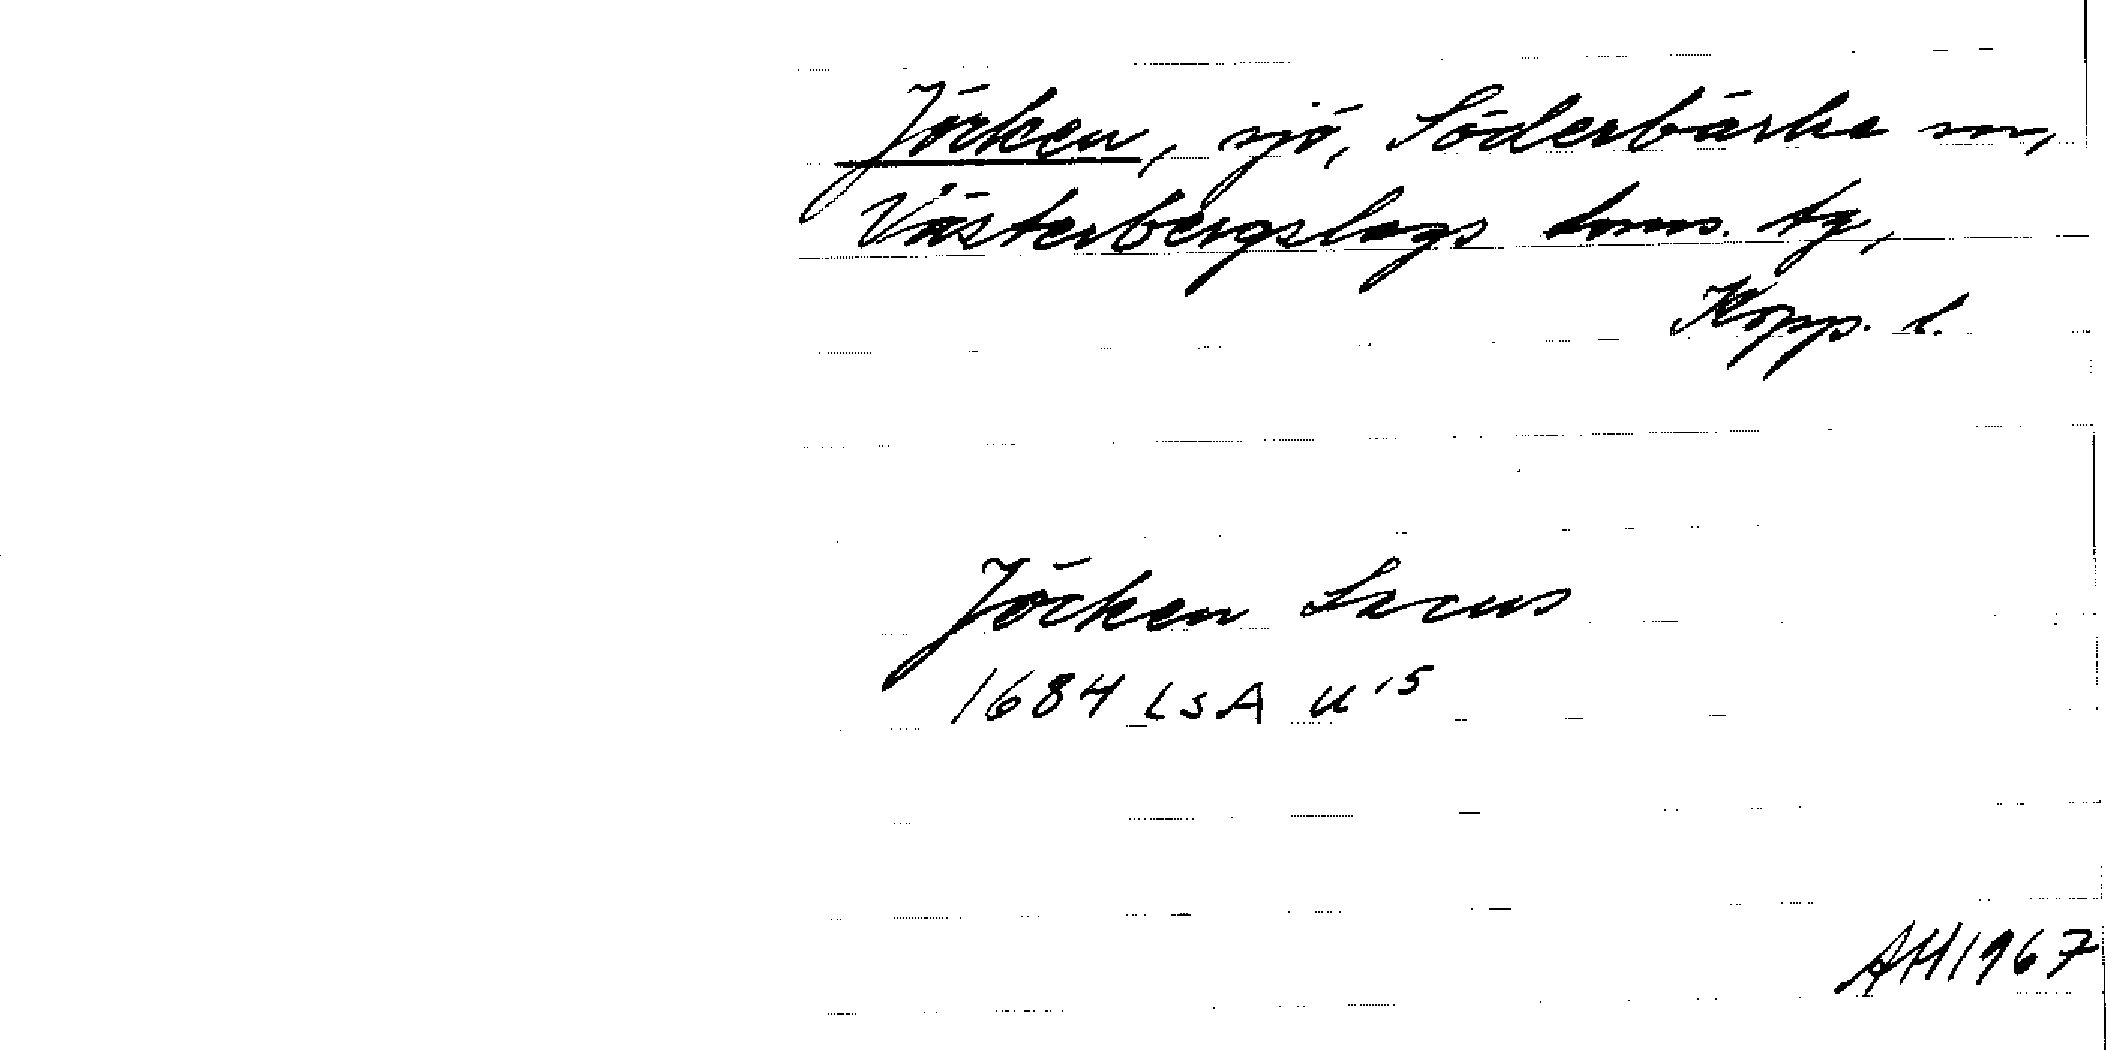 Jöcken, sjö, Söderbärke sn,
Västerbergslags doms. tg,
Kopp. l.
Jöcken Lacus
1684 LSA U 15
AH 1967